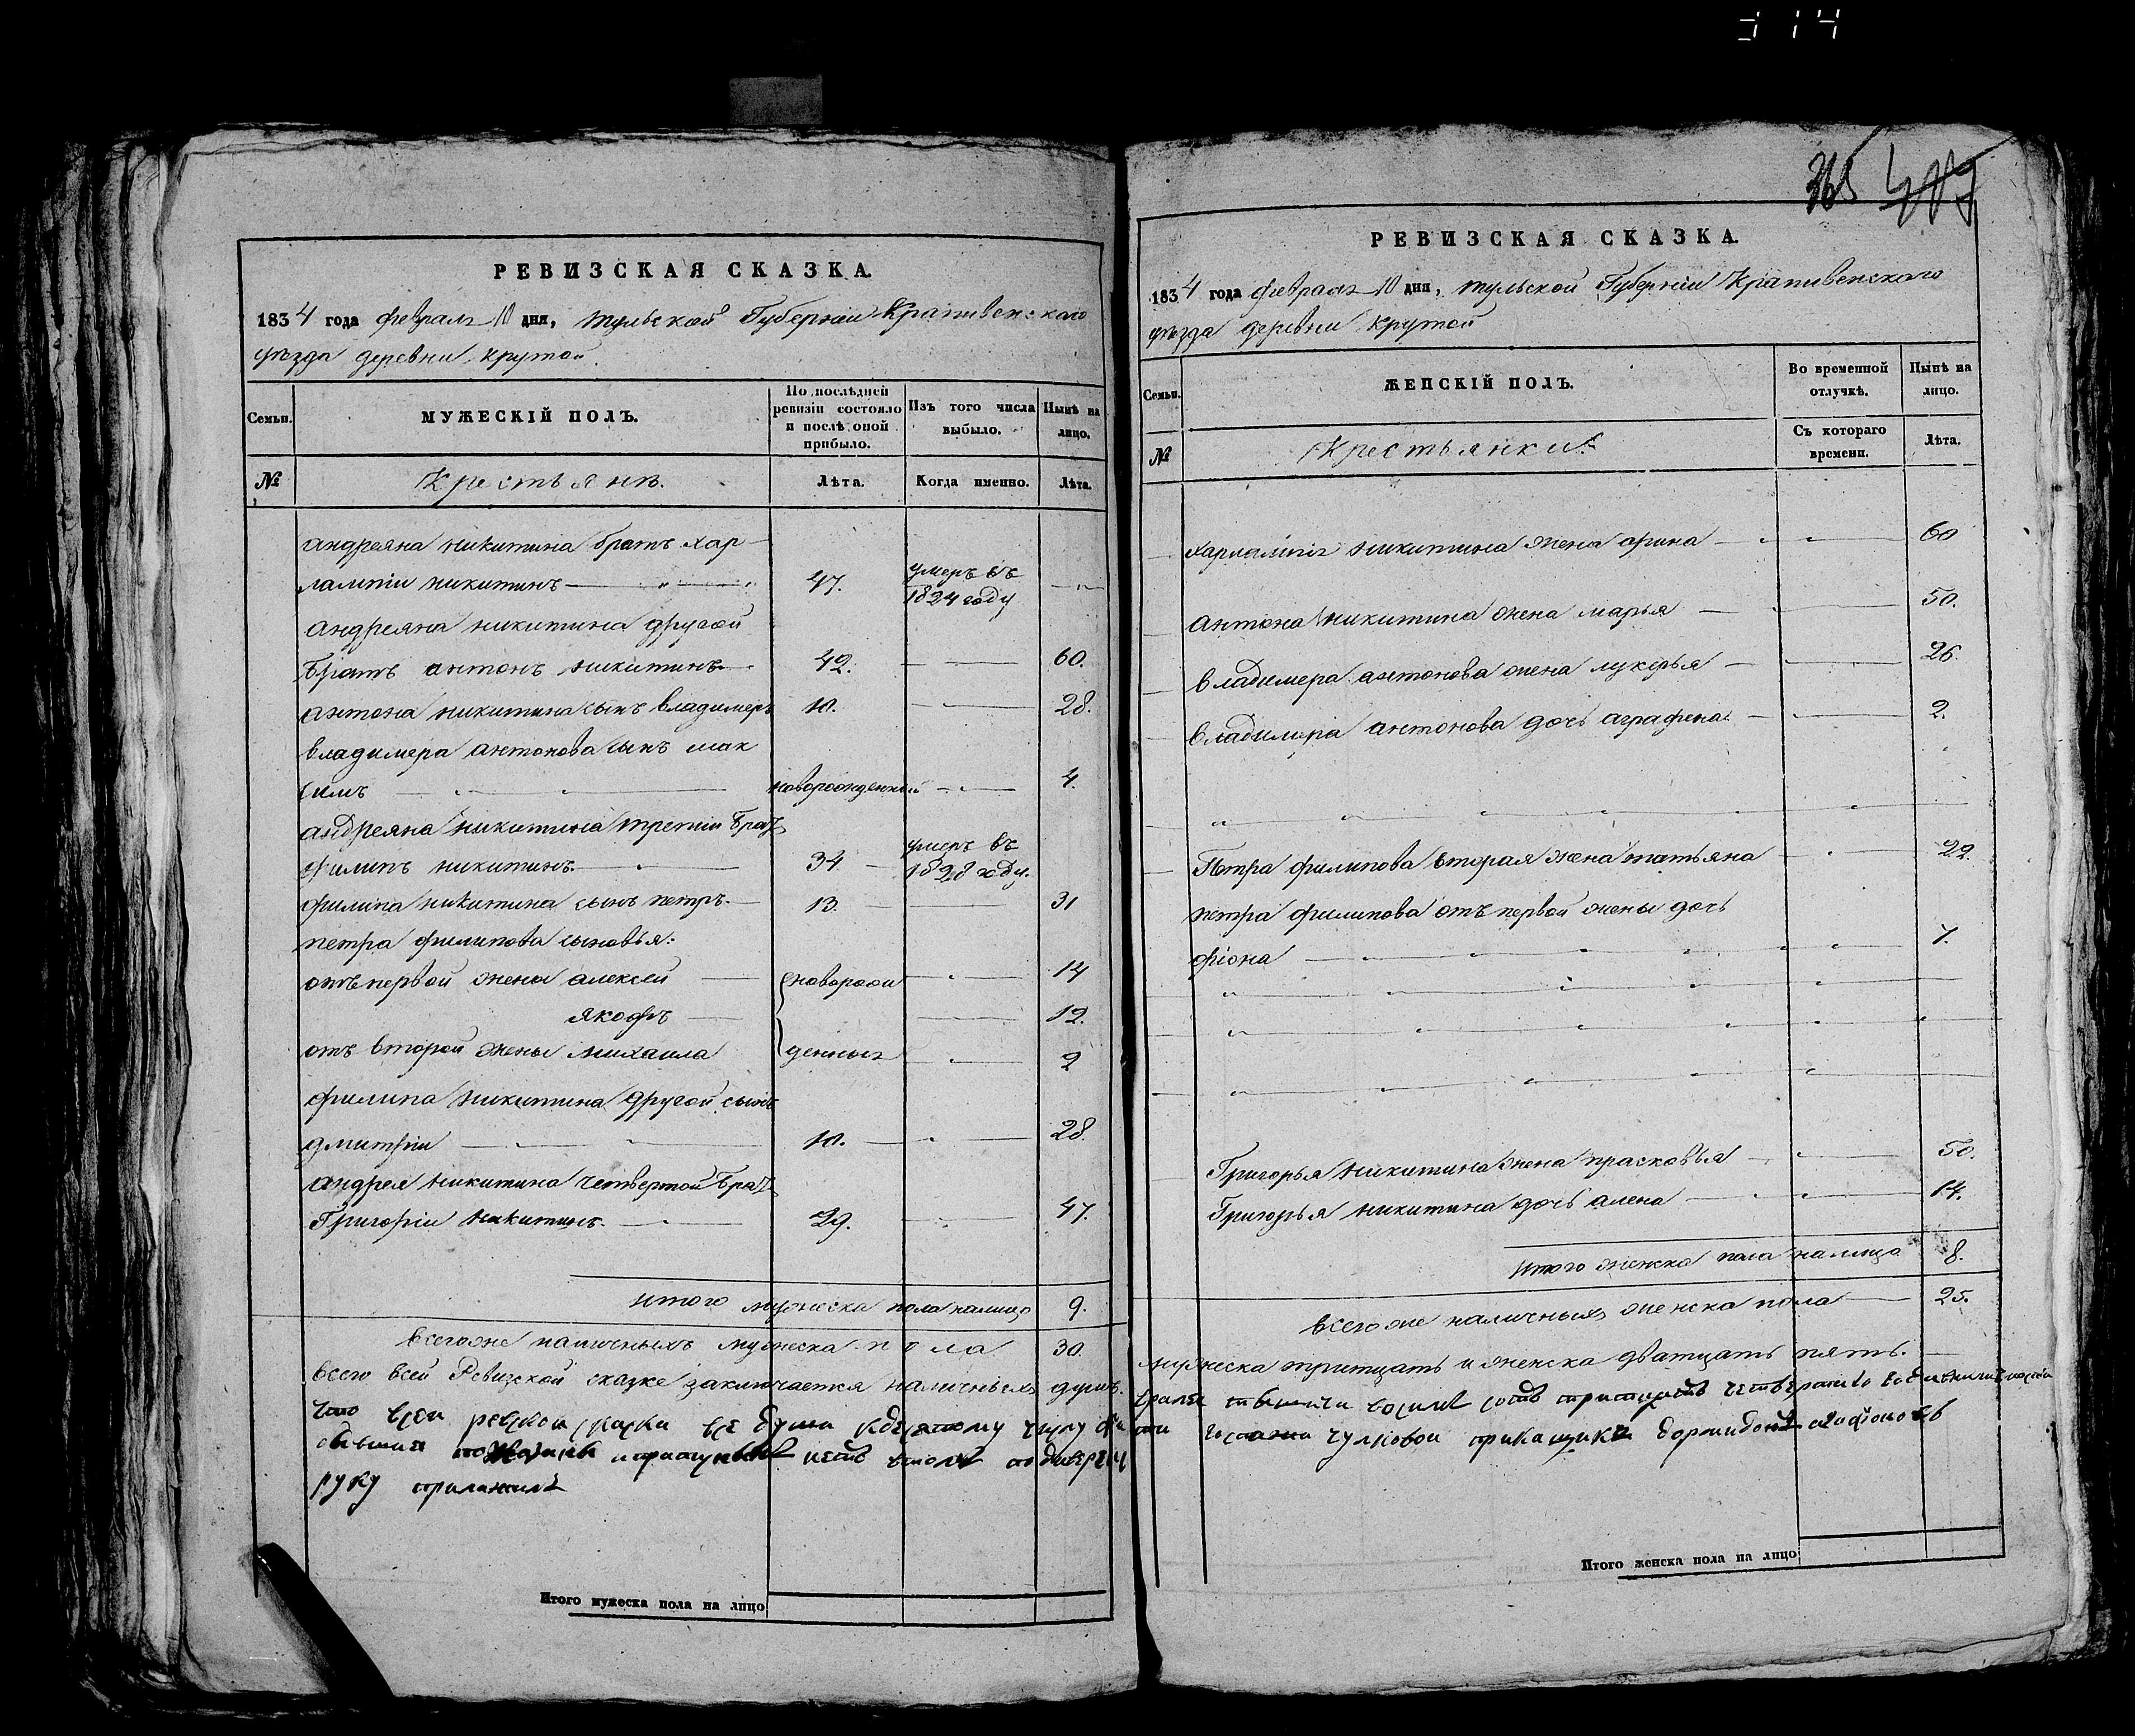 314
РЕВИЗСКАЯ СКАЗКА.
1834 года февраля 10 дня, тульской Губернии Крапивенскаго
уѣзда деревни крутой.
Семьи.
МУЖЕСКІЙ ПОЛЪ.
По послѣдней ревизіи состояло и послѣ оной прибыло.
Изъ того числа выбыло.
Нынѣ на лицо.
№
Крестьянѣ.
Лѣта.
Когда именно.
Лѣта.
андреяна никитина братъ хар
лампіи никитинъ 47. умеръ въ 1824 году
андреяна никитина другой
братъ антонъ никитинъ 42. 60.
антона никитина сынъ владимеръ 10. 28.
владимера антонова сынъ мак
симъ новорожденный 4.
андреяна никитина третіи братъ
филипъ никитинъ. 34 умеръ въ 1828 году.
филипа никитина сынъ петръ. 13. 31
петра филипова сыновья:
отъ первой жены алексей новорож 14
якофъ 12.
отъ второй жены михаила денныя 2
филипа никитина другой сынъ
дмитріи 10. 28.
андрея никитина четвертой братъ
Григоріи никитинъ. 29. 47.
итого мужеска пола налицо 9.
всегоже наличныхъ мужеска пола 30.
всего всей Ревизской сказке заключается наличныхъ душъ.
что
руку приложилъ
Итого мужеска пола на лицо
365
РЕВИЗСКАЯ СКАЗКА.
1834 года февраля 10 дня, тульской Губерніи Крапивенскаго
уѣзда деревни крутой
Семьи.
ЖЕНСКІЙ ПОЛЪ.
Во временной отлучкѣ.
Нынѣ на лицо.
№
Крестьянки
Съ котораго времени.
Лѣта.
харлампія никитина жена арина 60
антона никитина жена марья 50.
владимера антонова жена лукерья 26.
владимера антонова дочь аграфена 2.
Петра филипова вторая жена татьяна 22.
петра филипова отъ первой жены дочь
фіона 7.
Григорья никитина жена прасковья 50.
Григорья никитина дочь алена 14.
итого женска пола налицо 8.
всего же наличныхъ женска пола 25.
мужеска тритцать и женска дватцать пять.
чулковои прикащикъ
Итого женска пола на лицо